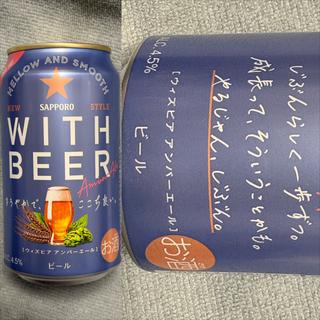 MELLOW AND SMOOTH
NEW SAPPORO STYLE
WITH
BEER
まろやかで、ここち良い。
お酒
[ウィズビア アンバーエール]
ALC.4.5%
ビール
じぶんらしく一歩ずつ。
成長って、そういうことかも。
やるじゃん、じぶん。
ビール
[ウィズビア アンバーエール]
お酒
ALC.4.5%